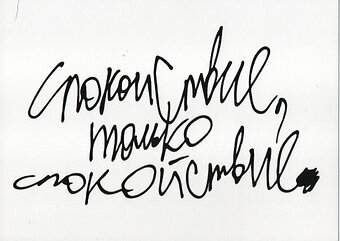 спокойствие,
только
спокойствие.